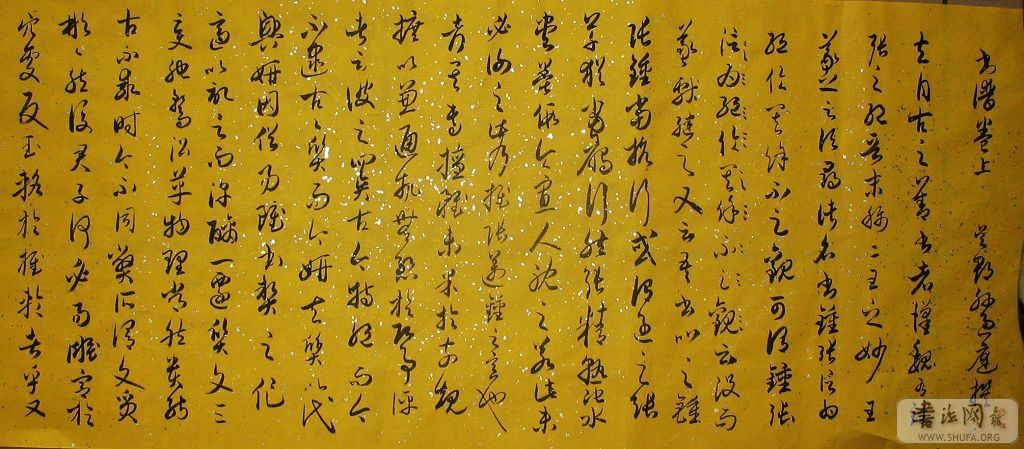 書譜卷上 吳郡孫過庭撰
夫自古之善書者漢魏有鍾
張之絕晉末稱二王之妙王
羲之云頃尋諸名書鍾張信為
絕倫其餘不足觀可謂鍾張
信為絕倫其餘不足觀云沒而
羲獻繼之又云吾書比之鍾
張鍾當抗行或謂過之張
草猶當鴈行然張精熟池水
盡墨假令寡人耽之若此未
必謝之此乃推張邁鍾之意也
考其專擅雖未果於前規
摭以兼通故無慚於即事評
者云彼之四賢古今特絕而今
不逮古古質而今妍夫質以代
興妍因俗易雖書契之作
適以記言而淳醨一遷質文三
變馳鶩沿革物理常然貴能
古不乖時今不同弊所謂文質
彬彬然後君子何必易雕宮於
穴處反玉輅於椎輪者乎又
書法网
WWW.SHUFA.ORG